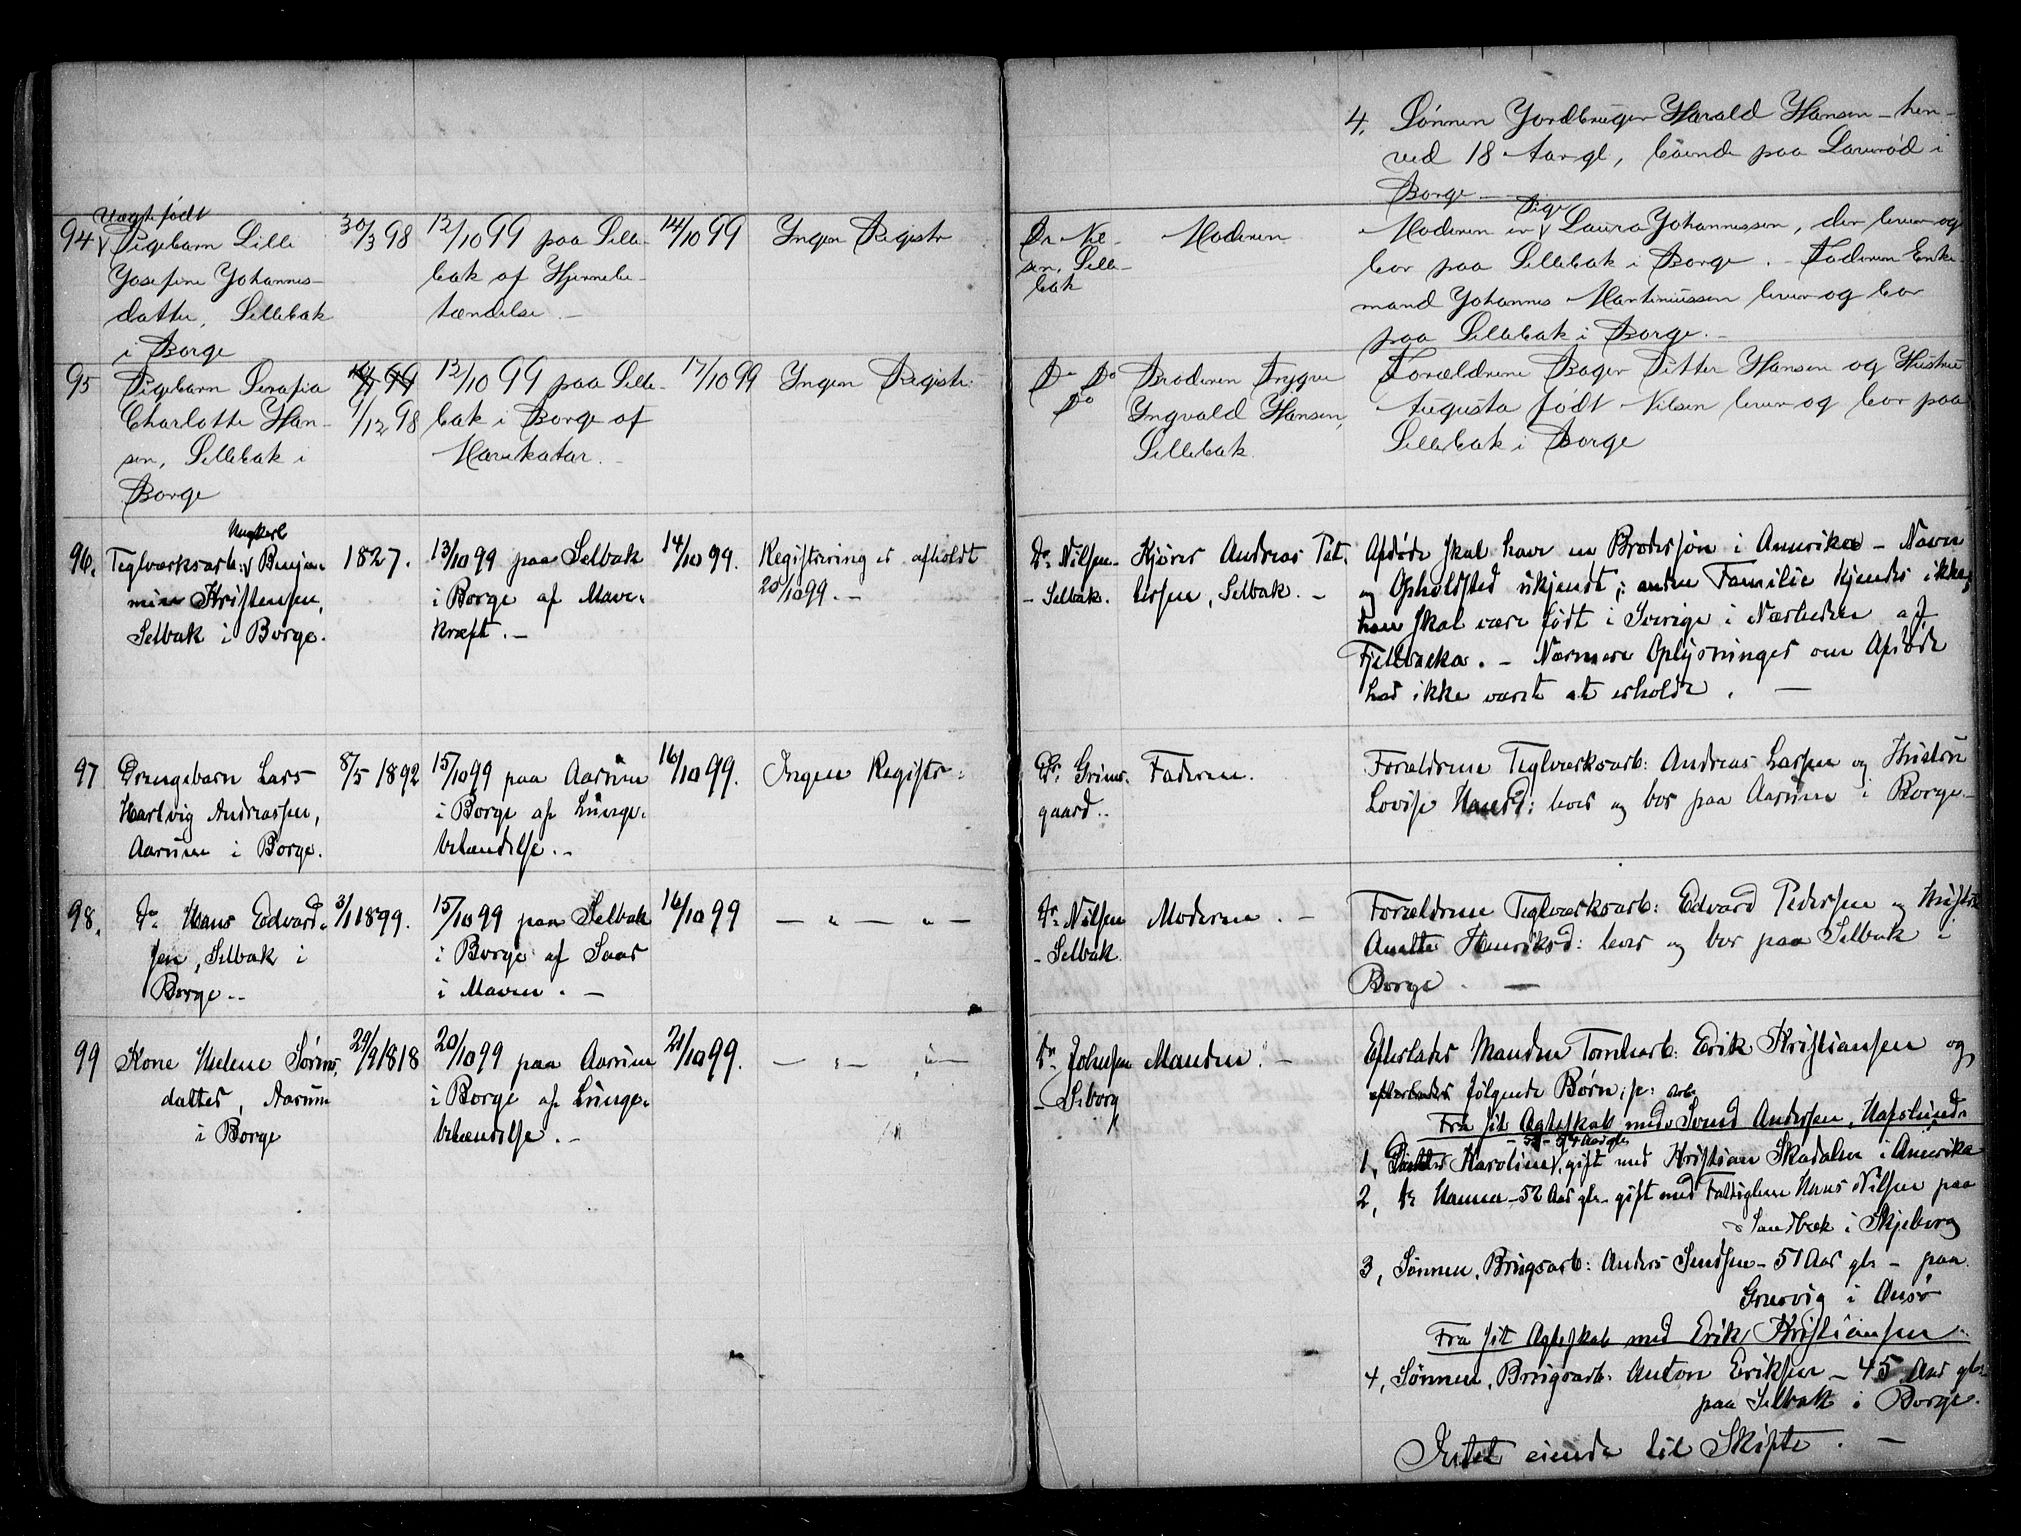 4. Sønnen Jordbruger Harald Hansen – hen-
ved 18 Aar gl, boende paa Laurød i
Borge –
Uægte født
94 Pigebarn Lilli
Josefine Johannes-
datter, Sellebak
i Borge
30/3 98
12/10 99 paa Selle-
bak af Hjernebe-
tændelse. –
14/10 99
Ingen Registr
Dr Niel-
sen, Selle-
bak
Moderen
Pige
Moderen er Laura Johannessen, der lever og
bor paa Sellebak i Borge. – Faderen Enke-
mand Johannes Martiniussen lever og bor
paa Sellebak i Borge. –
95 Pigebarn Serafia
Charlotte Han-
sen, Sellebak i
Borge
1/12 98
12/10 99 paa Selle-
bak i Borge af
Mavekatar. –
17/10 99
Ingen Registr:
Do Do
Do
Broderen Trygve
Ingvald Hansen,
Sellebak.
Forældrene Bager Petter Hansen og Hustru
Augusta født Nilsen lever og bor paa
Sellebak i Borge
Ungkarl
96. Teglværksarb: Benja-
min Kristensen,
Selbak i Borge.
1827.
13/10 99 paa Selbak
i Borge af Mave-
kræft. –
14/10 99.
Registrering er afholdt
20/10 99. –
Dr. Nilsen
– Selbak.
Kjører Andreas Pet-
tersen, Selbak. –
Afdøde skal have en Brodersøn i Amerika – Navn
og Opholdsted ukjendt; anden Familie kjendes ikke,
han skal være født i Sverige i Nærheden af
Fjellbacka. – Nærmere Oplysninger om Afdøde
har ikke været at erholde. –
97 Drengebarn Lars
Hartvig Andreassen,
Aarum i Borge.
8/5 1892
15/10 99 paa Aarum
i Borge af Lunge-
betændelse. –
16/10 99.
Ingen Registr:
Dr. Grims-
gaard. –
Faderen.
Forældrene Teglværksarb: Andreas Larsen og Hustru
Lovise Hansd: lever og bor paa Aarum i Borge. –
98. Do Hans Edvard-
sen, Selbak i
Borge. –
3/1 1899.
15/10 99 paa Selbak
i Borge af Saar
i Maven. –
16/10 99
– " – " –
Dr. Nilsen
– Selbak.
Moderen. –
Forældrene Teglværksarb: Edvard Pedersen og Hustru
Anette Henriksd: lever og bor paa Selbak i
Borge. –
99 Kone Helene Sørens-
datter, Aarum
i Borge
29/9 1818
20/10 99 paa Aarum
i Borge af Lunge-
betændelse. –
21/10 99.
– " – " –
Dr. Johnsen
– Seborg
Manden. –
Efterlader Manden Tomtearb: Erik Kristiansen og
efterlader følgende Børn:
Arb.
Fra sit Ægteskab med Svend Andersen, Hafslund.
– 54 Aar gl.
1, Datter Karoline, gift med Kristian Skadalen i Amerika
2, do Hanna – 52 Aar gl. – gift med Fattiglem Hans Nilsen paa
Sandbæk i Skjeberg
3, Sønnen, Brugsarb: Anders Sendsen – 51 Aar gl. – paa
Gresvig i Onsø
Fra sit Ægteskab med Erik Kristiansen.
4, Sønnen, Brugsarb: Anton Eriksen – 45 Aar gl.
paa Selbak i Borge.
Intet eiende til Skifte. –